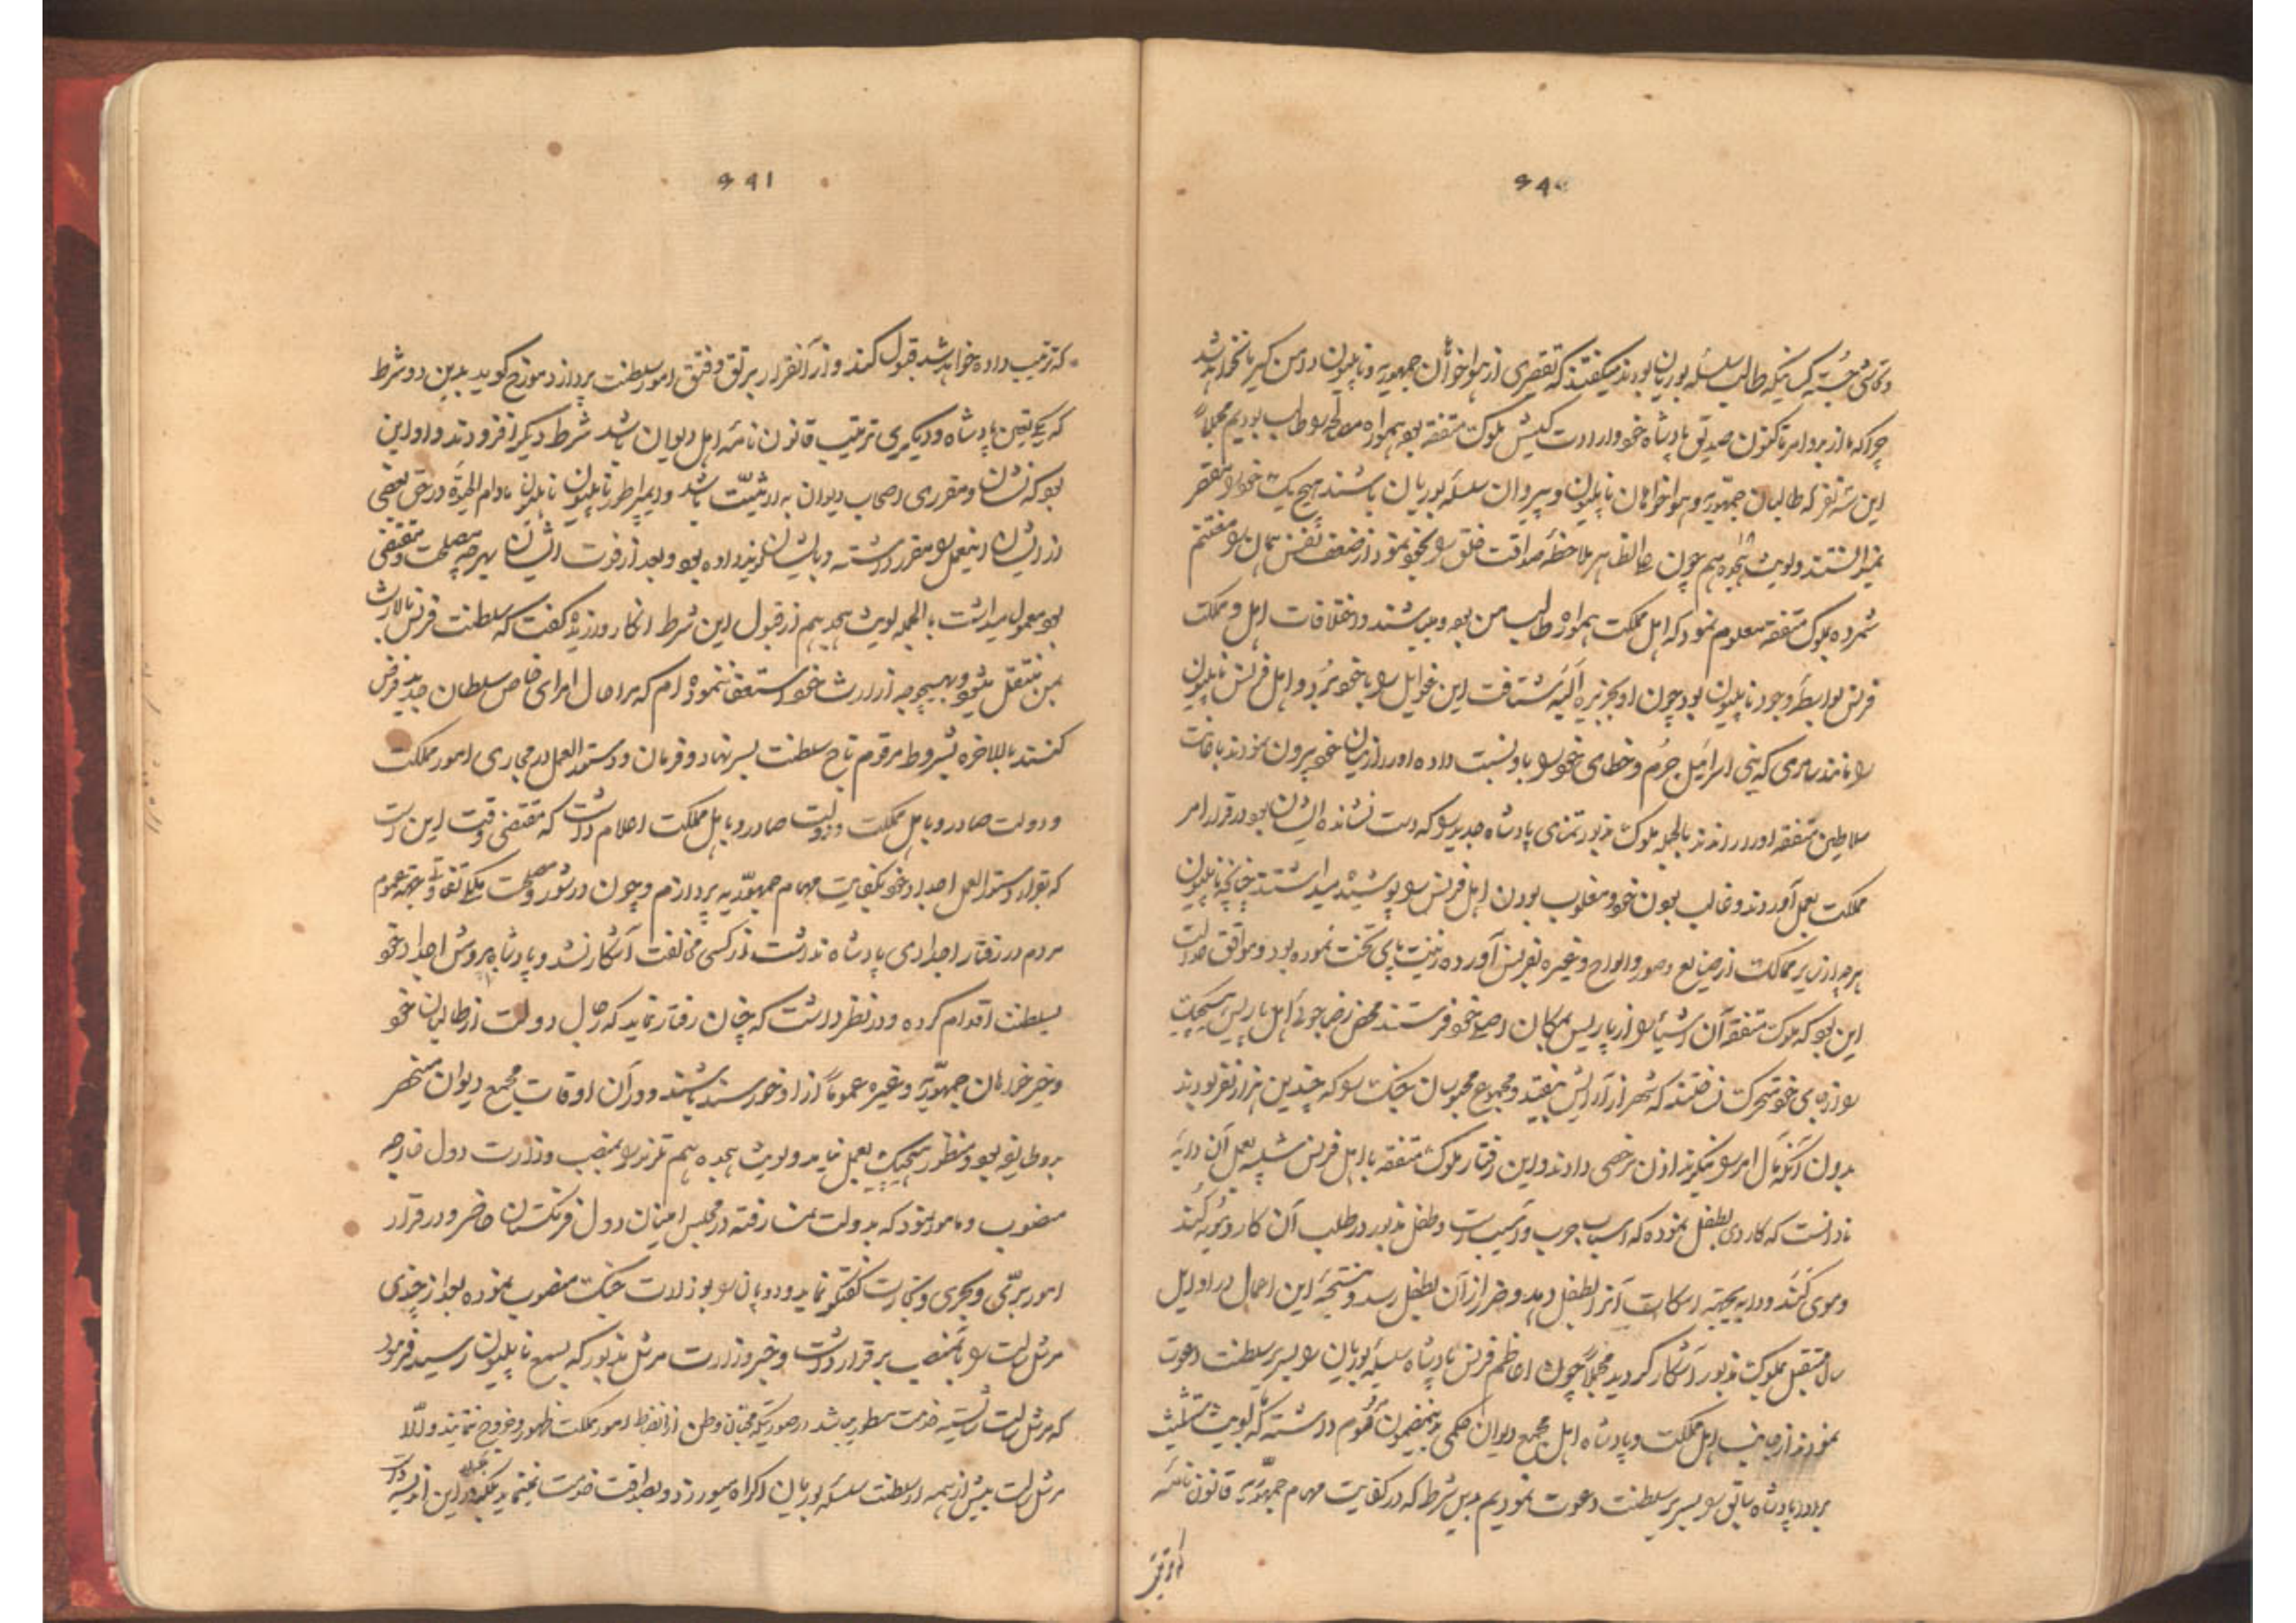 ۶۴۰
و تماشی جسته کسانیکه طالب سلسله بوربان بودند میگفتند که تقصیری از هواخواهان جمهوریه و ناپلیون دامن گیر ما نخواهد شد
چرا که ما از بدو امر تاکنون صدیق پادشاه خود و ارادت کیش ملوک متفقه بوده همواره مصالحه را طالب بودیم مجملاً
این سه نفر که طالبان جمهوریه و هواخواهان ناپلیون و پیروان سلسله بوربان باشند هیچ یک خود را مقصر
نمیدانستند و لویت هجدهم چون علی الظاهر ملاحظه صداقت خلق را بخود نمود از ضعف نفس همان را مغتنم
شمرده بملوک متفقه معلوم نمود که اهل مملکت همواره طالب من بوده و میباشند و اختلافات اهل و مملکت
فرنس بواسطه وجود ناپلیون بود چون او بجزیره البه شتافت این غوایل را با خود برد و اهل فرنس ناپلیون
را مانند سامری که بنی اسرائیل جرم و خطای خود را باو نسبت داده او را از میان خود بیرون نمودند باعانت
سلاطین متفقه او را راندند بالجمله ملوک مزبور تمنای پادشاه جدید را که دست نشانده ایشان بود در قرار امر
مملکت بعمل آوردند و غالب بودن خود و مغلوب بودن اهل فرنس را پوشیده میداشتند چنانچه ناپلیون
هرچه از سایر ممالک از صنایع و صور و الواح و غیره بفرنس آورده زینت پای تخت نموده بود و موافق عدالت
این بود که ملوک متفقه آن اشیا را از پاریس بمکان اصلی خود فرستند محض رضاجوئی اهل پاریس هیچیک
را از جای خود متحرک نساختند که شهر از آرایش نیفتد و مجموع محبوسان جنگ را که چندین هزار نفر بودند
بدون آنکه مآل امر را نیکرند اذن مرخصی دادند و این رفتار ملوک متفقه با اهل فرنس شبیه بعمل آن دایه
نادانست که کاردی بطفل نموده که اسباب چرب و آسیبست و طفل مزبور در طلب آن کارد مویه کند
و موی کند و دایه بجهته اسکات آنرا بطفل دهد و ضرر از آن بطفل رسد و نتیجه این اعمال در اوایل
سال مستقبل بملوک مزبور آشکار گردید مجملاً چون اعاظم فرنس پادشاه سلسله بوربان را بسریر سلطنت دعوت
نمودند از جانب اهل مملکت و پادشاه اهل مجمع دیوان حکمی بدینمضمون مرقوم داشته که ما لویت
برادر پادشاه سابق را بسریر سلطنت دعوت نمودیم بدین شرط که در کفایت مهام جمهوریه قانون نامه
۶۴۱
که ترتیب داده خواهد شد قبول کند و از آنقرار برتق و فتق امور سلطنت پردازد مورخ گوید بدین دو شرط
که یکی تعیین پادشاه و دیگری ترتیب قانون نامه اهل دیوان باشد شرط دیگر افزودند و او این
بود که نشان و مقرری اصحاب دیوان به ارثیت باشد و ایمپراطور ناپلیون مادام الحیوة در حق بعضی
از ایشان اینعمل را مقرر داشته و بایشان داده بود و بعد از فوت ایشان بهرچه مصلحت مقتضی
بود معمول میداشت بالجمله لویت هجدهم از قبول این شرط انکار ورزیده گفت که سلطنت فرنس بالارث
بمن منتقل میشود و بهیچوجه از ارث خود استعفا ننموده ام که مرا حال امرای خاص سلطان جدید فرض
کنند بالاخره بشروط مرقوم تاج سلطنت بسر نهاد و فرمان و دستورالعمل در مجاری امور مملکت
و دولت صادر و باهل مملکت و دولت صادر و باهل مملکت اعلام داشت که مقتضی وقت این است
که بقرار دستورالعمل اجداد خود بکفایت مهام جمهوریه پردازم و چون در شور و مصلحت ملکی عموم
مردم در رفتار اجدادی پادشاه نداشت از کسی مخالفت آشکار نشد و پادشاه بروش اجداد خود
بسلطنت اقدام کرده و در نظر داشت که چنان رفتار نماید که رجال دولت از طالبان خود
و خیرخواهان جمهوریه و غیره عموماً از او خورسند باشند و در آن اوقات مجمع دیوان منحصر
بدو طایفه بود و منظور هیچیک بعمل نیامد و لویت هجدهم را بمنصب وزارت دول خارجه
منصوب و مامور نمود که بدولت نمسا رفته در مجلس امینان دول فرنگستان حاضر و در قرار
امور بری و بحری و تجارت گفتگو نماید و دوپان را بوزارت جنگ منصوب نموده بعد از چندی
مرشل سالت را بآنمنصب برقرار داشت و خبر وزارت مرشل مزبور که بسمع ناپلیون رسید فرمود
که مرشل سالت شایسته خدمت مسطور میباشد در صورتیکه محبان وطن از انضباط امور مملکت ظهور و خروج ننمایند والا
مرشل سالت بیش از همه از سلطنت سلسله بوربان اکراه میورزد و بصداقت خدمت نمینماید بلکه در این اندیشه است